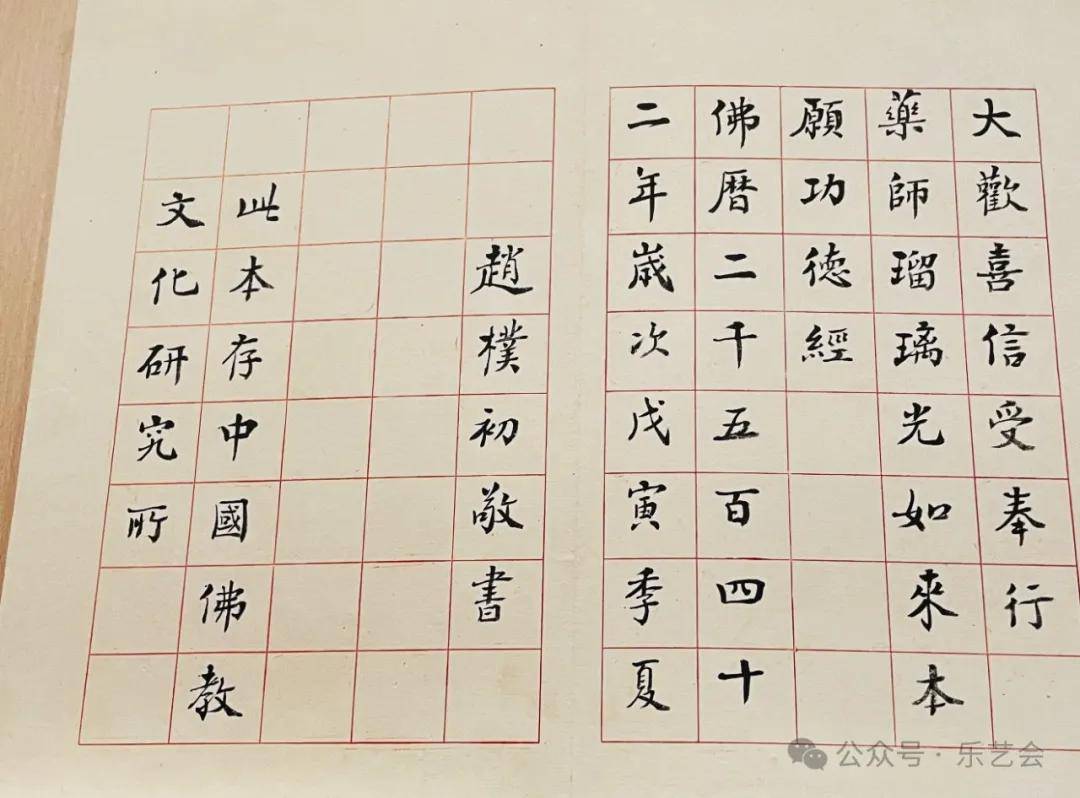 大歡喜信受奉行
藥師瑠璃光如來本
願功徳經
佛曆二千五百四十
二年歲次戊寅季夏
趙樸初敬書
此本存中國佛教
文化研究所
公众号·乐艺会